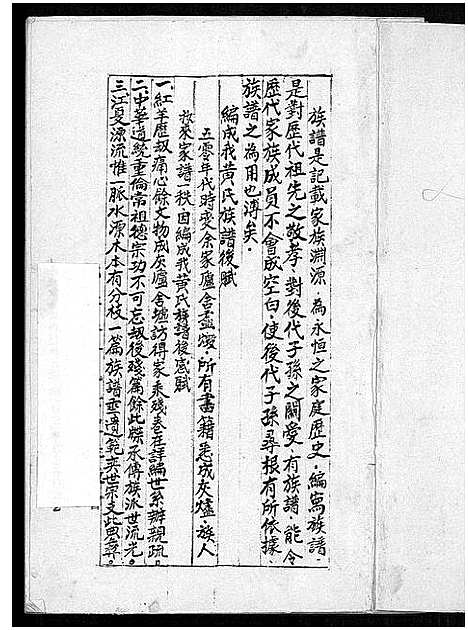 族譜是記載家族淵源，為永恒之家庭歷史，編寫族譜，
是對歷代祖先之敬孝，對後代子孫之關愛，有族譜，能令
歷代家族成員不會成空白，使後代子孫尋根有所依據，
族譜之為用也溥矣。
編成我黃氏族譜後賦
五零年代時变余家廬舍盡燬，所有書籍悉成灰燼，族人
救來家譜一秩因編成我黃氏族譜後感賦
一紅羊歷刼痛心餘文物成灰廬舍墟訪得家乘殘卷在詳編世系辦親疏。
二中華道統重倫常祖德宗功不可忘刼後殘篇餘此牒承傳族派世流光。
三江夏源流惟一脈水源木本有分枝一篇族譜垂遺範奕世宗支此思尋。